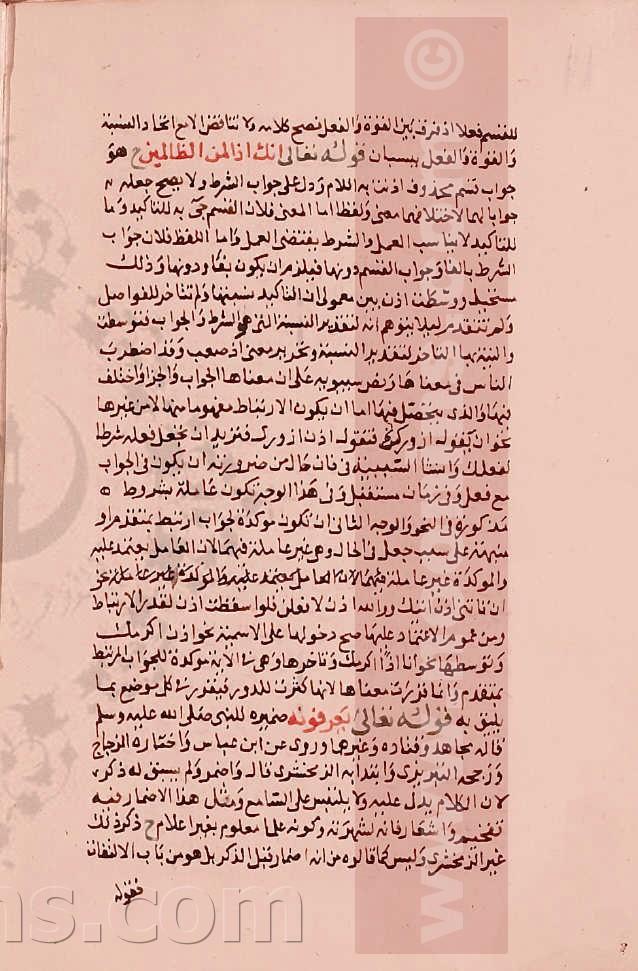 للقسم فعلا اذ فرق بين القوة والفعل فصح كلامه ولا تناقض الامع اتحاد النسبة
والقوة والفعل ينسبان قوله تعالى انك اذا لمن الظالمين ح هو
جواب قسم محذوف اذنت به اللام ودل على جواب الشرط ولا يصح جعله
جوابا لهما لاختلافهما معنى ولفظا اما المعنى فلان القسم جئ به للتاكيد وما
للتاكيد لا يناسب العمل والشرط يقتضى العمل واما اللفظ فلان جواب
الشرط بالفا وجواب القسم دونها فيلزم ان يكون بفا ودونها وذلك
مستحيل ووسطت اذن بين معمولى ان التاكيد نسبتها ولم تتاخر للفواصل
ولم تتقدم ليلا يتوهم انه لتقدير النسبة التى هى الشرط والجواب فتوسطت
والنية بها التاخر لتقدير النسبة وتحرير معنى اذ صعب وقد اضطرب
الناس فى معناها ونص سيبويه على ان معناها الجواب والجزا واختلف
فيها والذى يتحصل فيها اما ان يكون الارتباط مفهوما منها لا من غيرها
نحو ان يقول ازورك فتقول اذن ازورك فتريد ان تجعل فعله شرطا
لفعلك وانشا السببية فى ثان حال من ضرورته ان يكون فى الجواب
مع فعل وفى زمان مستقبل وفى هذا الوجه تكون عاملة بشروط
مذكورة فى النحو والوجه الثانى ان تكون موكدة لجواب ارتبط بمتقدم او
منبهة على سبب حصل فى الحال وهى غير عاملة فيهما لان العامل يعتمد عليه
والموكدة غير عاملة نحو
ان تاتنى اذن اتيك ووالله اذن لا فعلن فلوا سقطت اذن لقدر الارتباط
ومن عموم الاعتماد عليها صح دخولها على الاسمية نحو اذن اكرمك
وتوسطها نحو انا اذا اكرمك وتاخرها وهى فى الاية موكدة للجواب المرتبط
بمتقدم وانما قررت معناها لانها كثرت للدور فيقدر فى كل موضع بما
يليق به قوله تعالى يعرفونه ضميره للنبى صلى الله عليه وسلم
قاله مجاهد وقتاده وغيرهما وروى عن ابن عباس واختاره الزجاج
ورجحه التبريزى وابتدا به الزمخشرى قال واضمر ولم يسبق له ذكر
لان الكلام يدل عليه ولا يلتبس على السامع ومثل هذا الاضمار فيه
تفخيم واشعار فانه لشهرته وكونه علما معلوم بغير اعلام ح ذكر ذلك
غير الزمخشرى وليس كما قالوه من انه اضمار قبل الذكر بل هو من باب الالتفات
فقوله